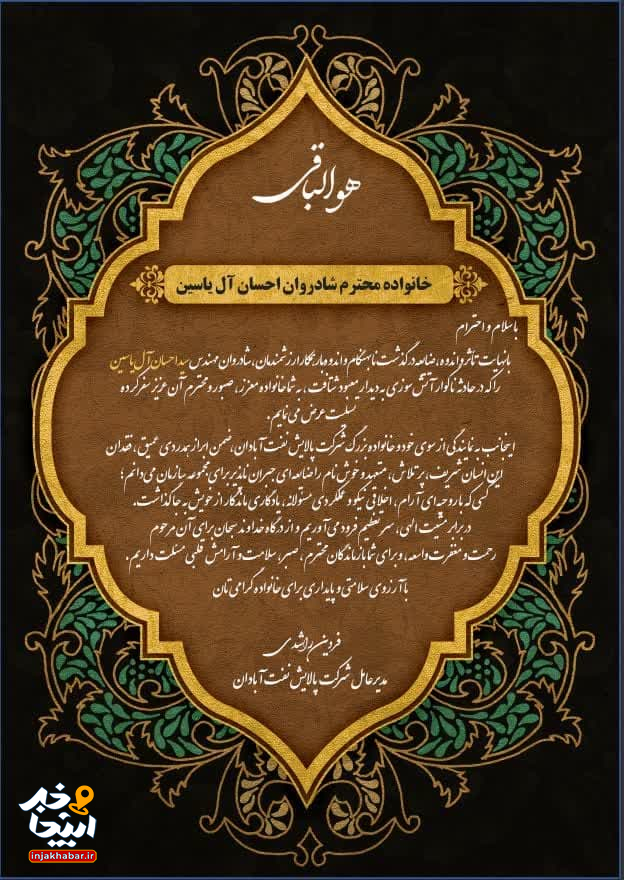 هوالباقی
خانواده محترم شادروان احسان آل یاسین
با سلام و احترام
با نهایت تأثر و اندوه، ضایعه درگذشت نابهنگام و اندوهبار همکار ارزشمندمان، شادروان مهندس سید احسان آل یاسین
را که در حادثه ناگوار آتش سوزی به دیدار معبود شتافت، به شما خانواده معزز، صبور و محترم آن عزیز سفر کرده
تسلیت عرض می نمایم.
اینجانب به نمایندگی از سوی خود و خانواده بزرگ شرکت پالایش نفت آبادان، ضمن ابراز همدردی عمیق، فقدان
این انسان شریف، پرتلاش، متعهد و خوش نام را ضایعه ای جبران ناپذیر برای مجموعه سازمان می دانم؛
کسی که با روحیه ای آرام، اخلاقی نیکو و عملکردی مسئولانه، یادگاری ماندگار از خویش به جا گذاشت.
در برابر مشیت الهی، سر تعظیم فرود می آوریم و از درگاه خداوند سبحان برای آن مرحوم
رحمت و مغفرت واسعه، و برای شما بازماندگان محترم، صبر، سلامت و آرامش قلبی مسئلت داریم.
با آرزوی سلامتی و پایداری برای خانواده گرامی تان
فردین راشدی
مدیرعامل شرکت پالایش نفت آبادان
اینجا خبر
injakhabar.ir